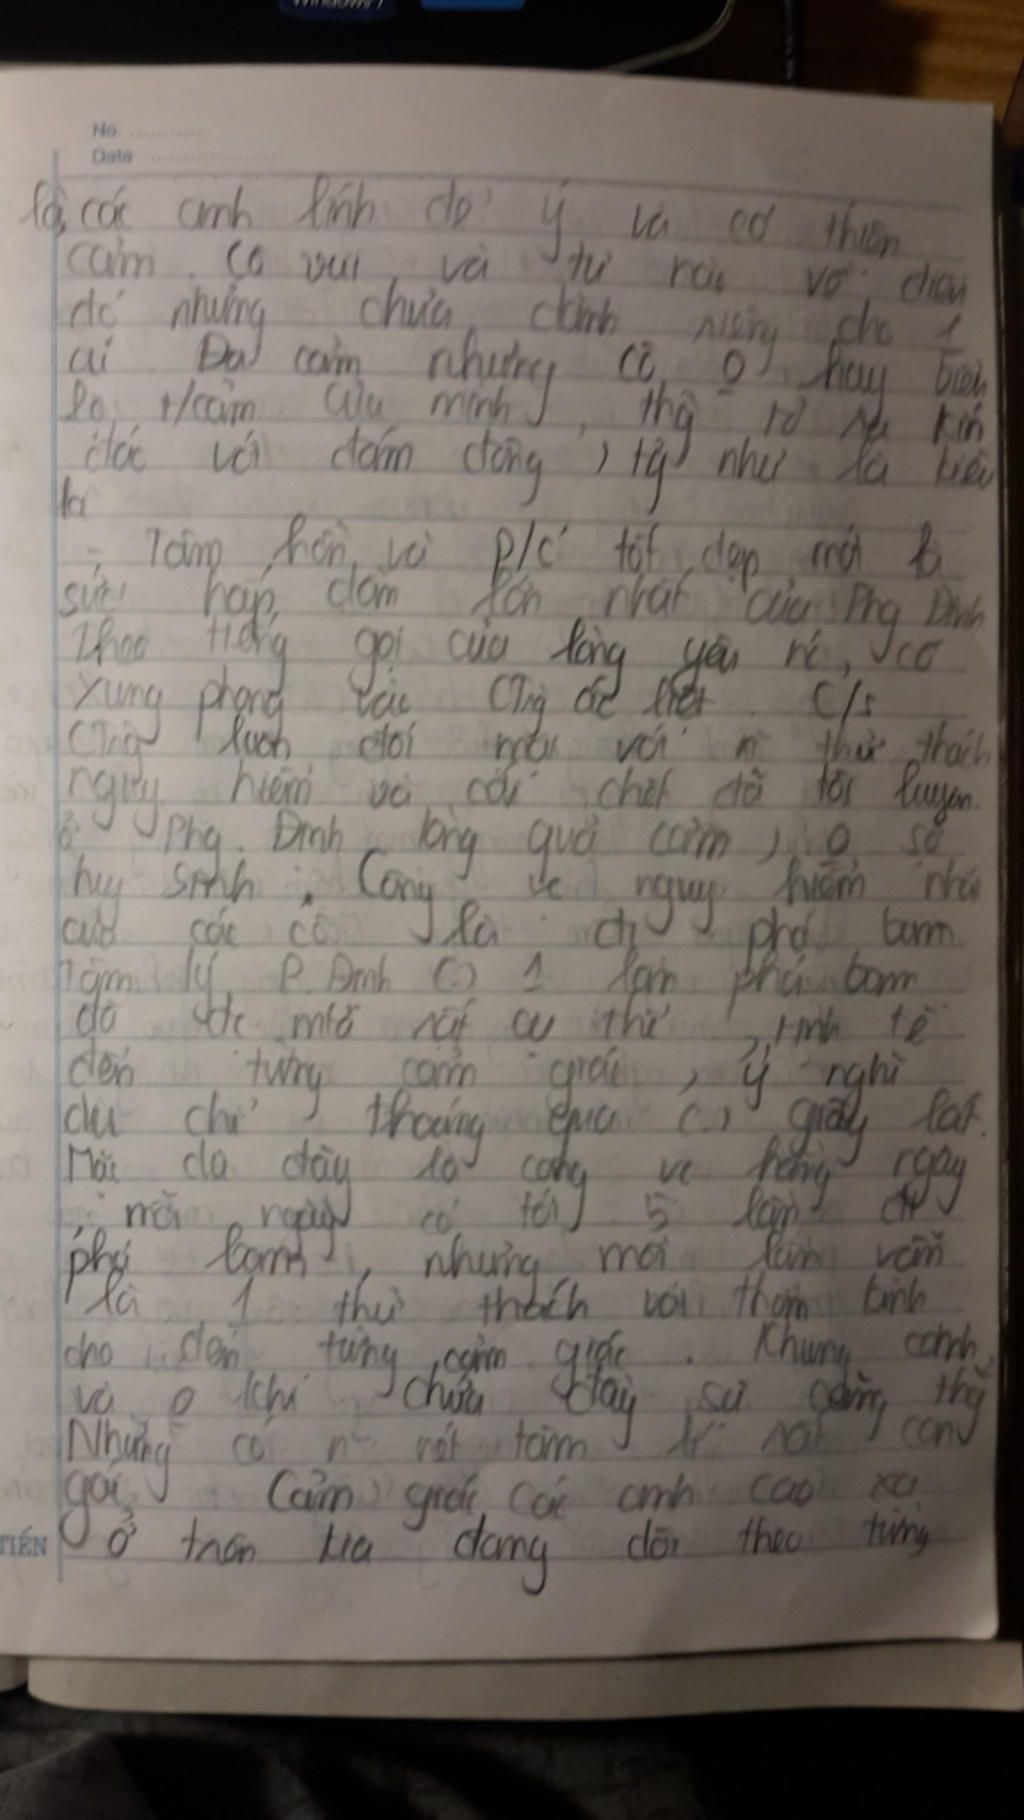 No. ............
Date ......................
là các anh lính để ý và có thiện
cảm. Cô vui và tự hào về điều
đó nhưng chưa dành riêng cho 1
ai Đa cảm nhưng cô 0 hay biểu
lộ t/cảm của mình, thg tỏ ra kín
đáo với đám đông, tg như là kiêu
kì
- Tâm hồn và p/c tốt đẹp mới là
sức hấp dẫn lớn nhất của Phg Định
Theo tiếng gọi của lòng yêu nc, cô
xung phong vào CTrg ác liệt. C/s
CTrg luôn đối mặt với n thử thách
nguy hiểm và cái chết đã tôi luyện
ở Phg Định lòng quả cảm, 0 sợ
hy sinh. Công vc nguy hiểm nhất
của các cô là đi phá bom
Tâm lý P. Định (.) 1 lần phá bom
đã đc miê rất cụ thể, tinh tế
đến từng cảm giác, ý nghĩ
dù chỉ thoáng qua (.) giây lát.
Mặc dù đây là công vc hàng ngày
, mỗi ngày có tới 5 lần đi
phá bom, nhưng mỗi lần vẫn
là 1 thử thách với thần kinh
cho đến từng cảm giác. Khung cảnh
và 0 khí chứa đầy sự căng thg
Nhưng có n nét tâm lí rất con
gái Cảm giác các anh cao xạ
TIẾN ở trên kia đang dõi theo từng